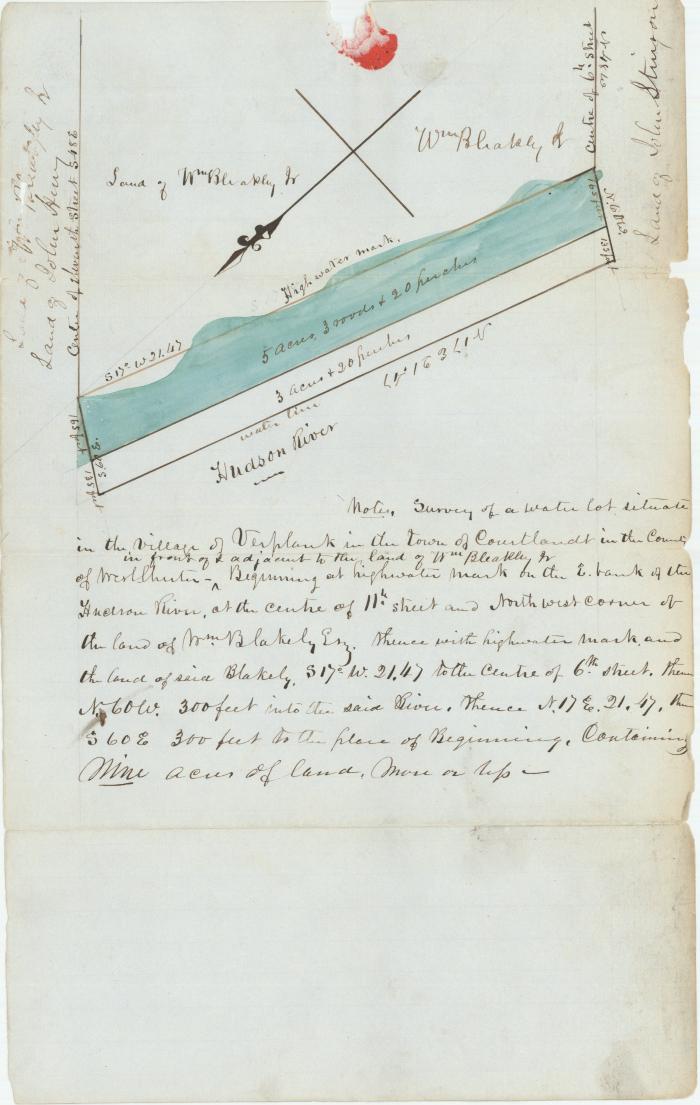 Centre of 6th Street
Land of John Stinson
Wm Bleakly Jr
Land of Wm Bleakly Jr
Land of John Henry
Centre of Eleventh Street
High water mark.
S 17° W. 21.47
5 acres, 3 roods & 20 perches
3 acres & 20 perches
165 feet
135 feet
S 60 E.
165 feet
135 ft
N. 60 W.
N 17 E 21.47
water line
Hudson River
Notes. Survey of a water lot situate
in the village of Verplank in the town of Courtlandt in the County
in front of & adjacent to the land of Wm Bleakly Jr
of Westchester - ^ Beginning at highwater mark on the E. bank of the
Hudson River, at the centre of 11th street and Northwest corner of
the land of Wm Blakely Esq. thence with highwater mark, and
the land of said Blakely, S 17° W. 21,47 to the Centre of 6th street. then
N. 60 W. 300 feet into the said River, thence N. 17 E. 21.47, th
S 60 E 300 feet to the place of Beginning, Containing
Nine acres of land, More or less -